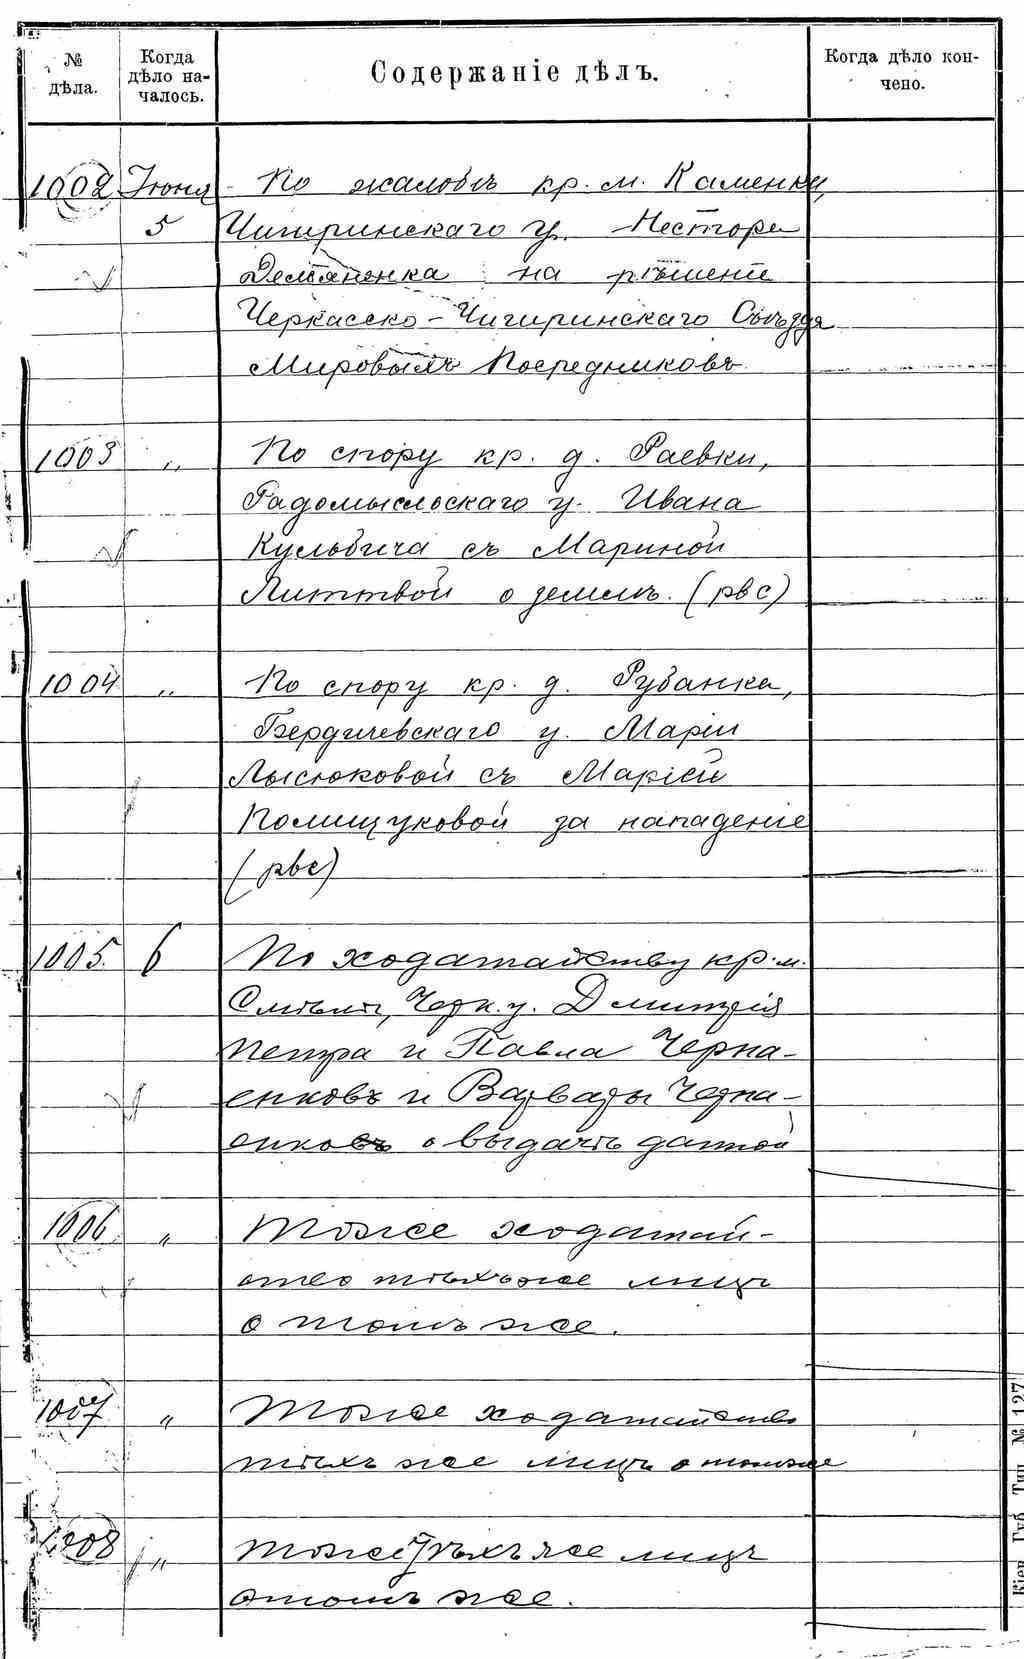 № дѣла.
Когда дѣло на-
чалось.
Содержаніе дѣлъ.
Когда дѣло кон-
чено.
1002 Іюня 5
По жалобѣ кр. м. Каменки,
Чигиринскаго у. Нестора
Демяненка на рѣшеніе
Черкасско-Чигиринскаго Съѣзда
Мировыхъ Посредниковъ
1003 „
По спору кр. д. Раевки,
Радомысльскаго у. Ивана
Кульбича съ Мариной
Литтвой о землѣ. (рвс)
1004 „
По спору кр. д. Рубанка,
Бердичевскаго у. Маріи
Лысюковой съ Маріей
Полищуковой за нападеніе
(рвс)
1005. 6
По ходатайству кр. м.
Смѣлы, Черк. у. Дмитрія
Петра и Павла Черна-
енковъ и Варвары Черна-
енковъ о выдачѣ данной
1006 „
Тоже ходатай-
ство тѣхъ же лицъ
о томъ же.
1007 „
Тоже ходатайство
тѣхъ же лицъ о томже
1008 „
тоже тѣхъ же лицъ
о томъ же.
Кіев. Губ. Тип. № 127